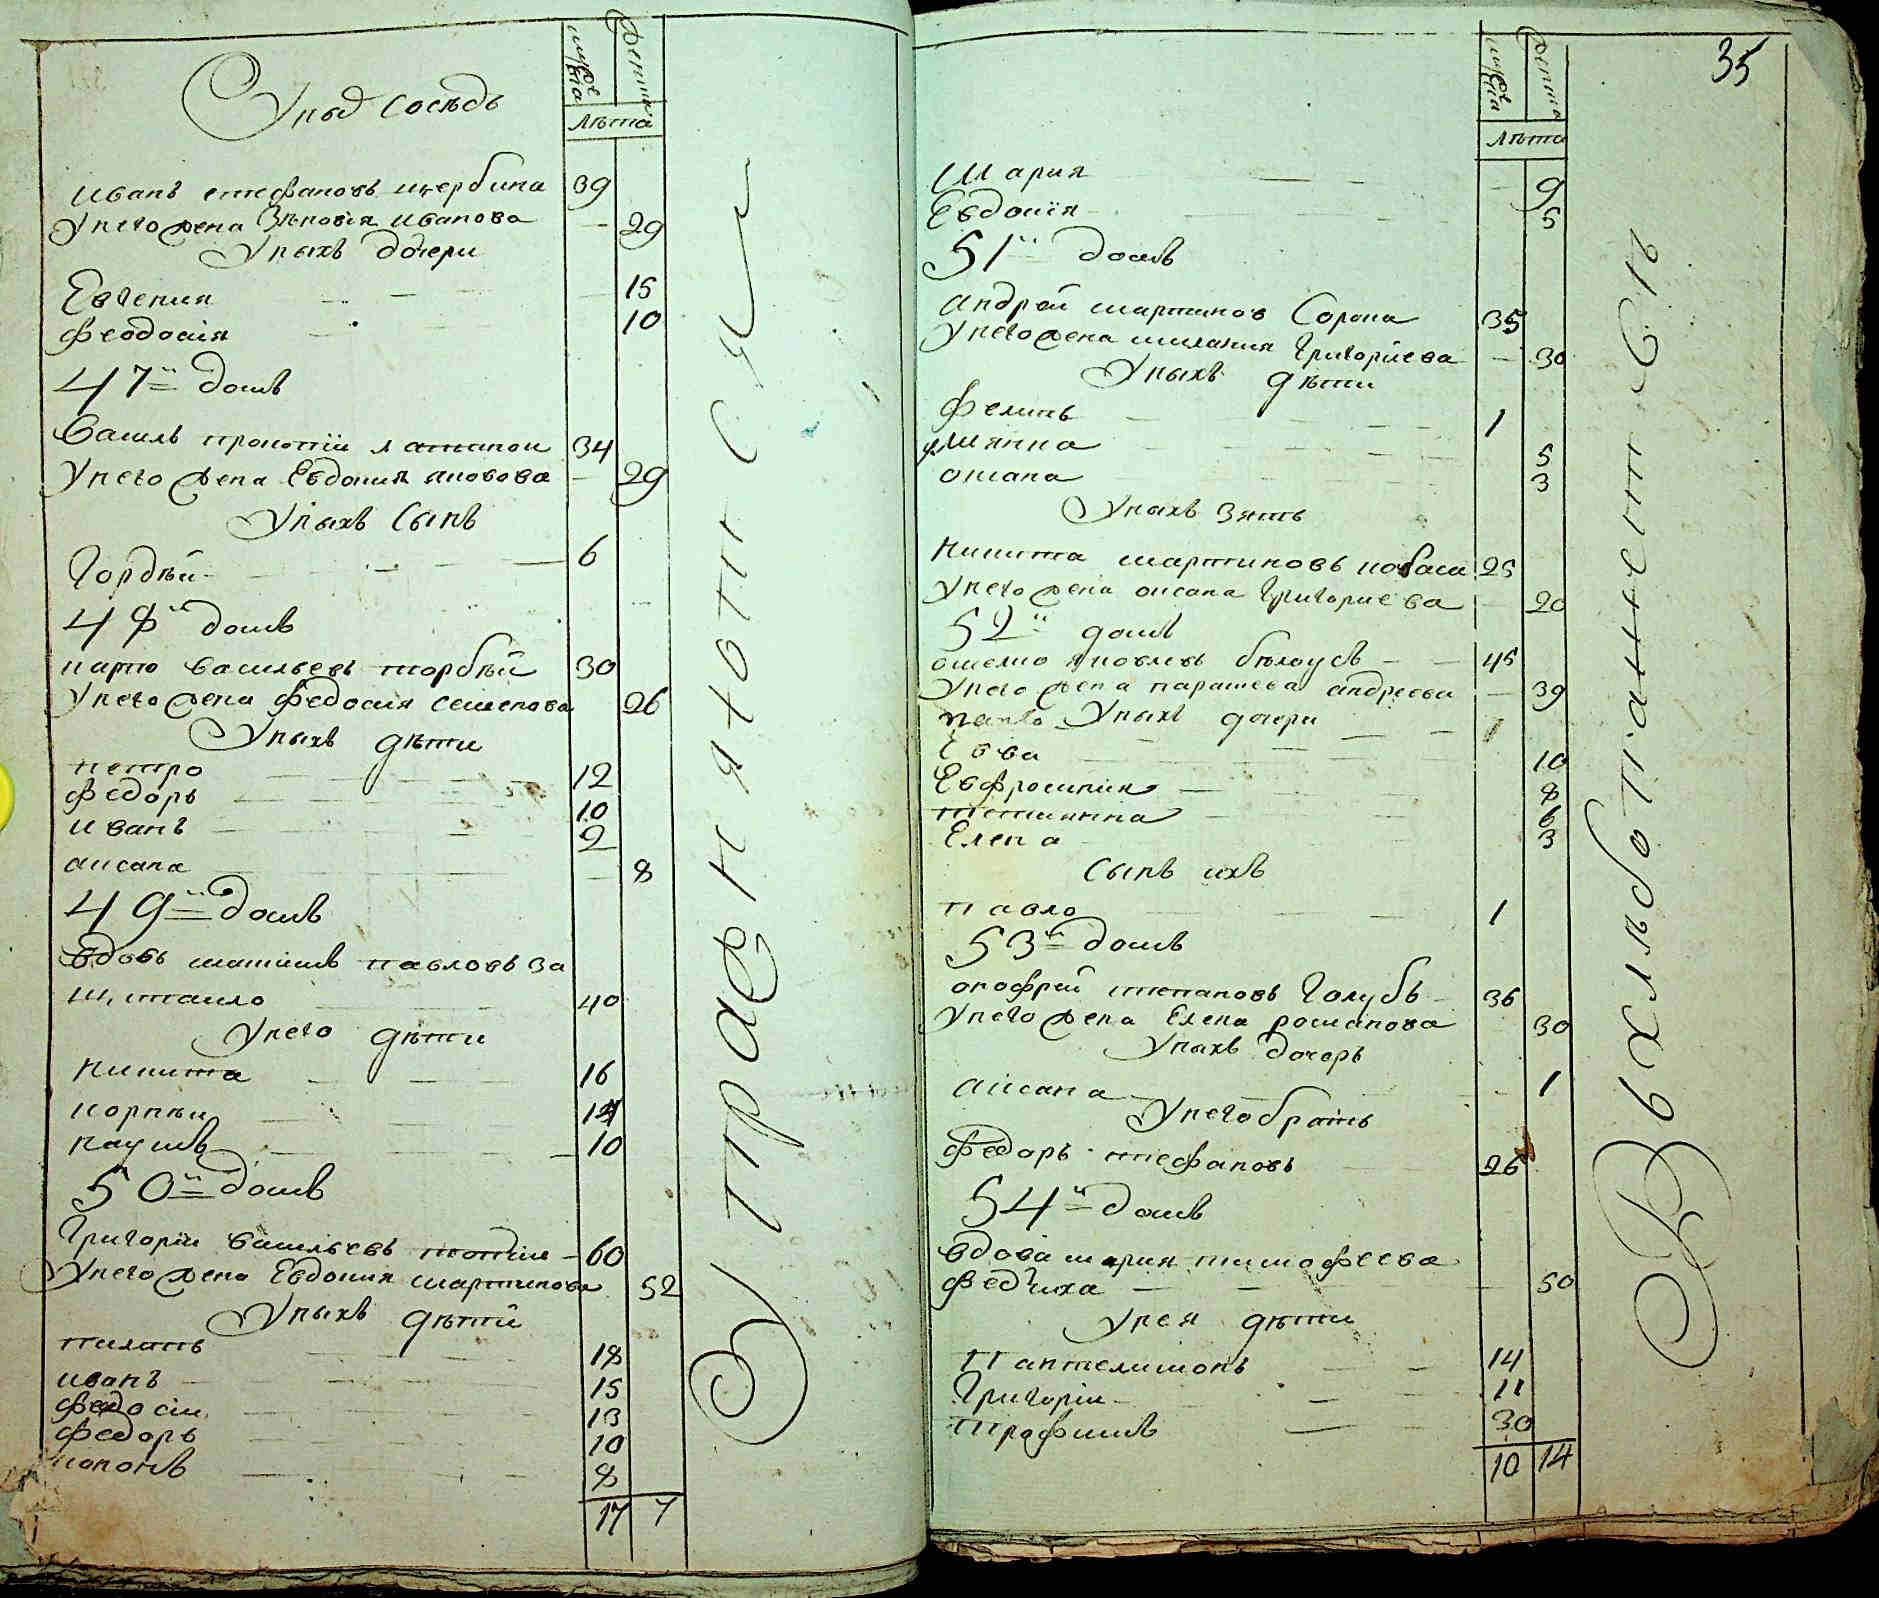 мужеска
женска
лѣта
У ныхъ сосѣдъ
Иванъ стефановъ щербина 39
У него жена Зѣновія иванова — 29
У ныхъ дочери
Евгения 15
Феодосия 10
47й домъ
Василь прокопїи 34
У него жена Евдокия яковова — 29
У ныхъ сынъ
Гордѣй 6
48й домъ
карпо васильевъ торбѣй 30
У него жена федосия семенова 26
У ныхъ дѣти
петро 12
федоръ 10
иванъ 2
аксана — 8
49й домъ
вдовъ максимъ павловъ за
40
У него дѣти
никита 16
корнѣи 14
наумъ 10
50й домъ
Григоріи васильевъ 60
У него жена Евдокия мартинова 52
У ныхъ дѣти
пилипъ 18
иванъ 15
федосіи 13
федоръ 10
кононъ 8
17 7
У пражнятся
35
мужеска
женска
лѣта
Мария — 9
Евдокїя 5
51й домъ
андрей мартинов Сорока 35
У него жена милания Григориева — 30
У ныхъ дѣти
Фелипъ 1
улиянна 5
оксана 3
У ныхъ зять
никита мартиновъ кобаса 25
У него жена оксана Григориева — 20
52й домъ
омелко яковлевъ бѣлоусъ 45
У него жена парасковя андреева — 39
У ныхъ дочери
Евва 10
Евфросиния 8
татиянна 6
Елена 3
сынъ ихъ
павло 1
53й домъ
онофрей степановъ Голубъ 36
У него жена Елена романова 30
У ныхъ дочерь
аксана — 1
У него братъ
федоръ стефановъ 26
54й домъ
вдова мария тимофеева
федчиха — 50
У нея дѣти
пантелимонъ 14
Григоріи 11
трофимъ 30
10 14
В хлѣбопашест